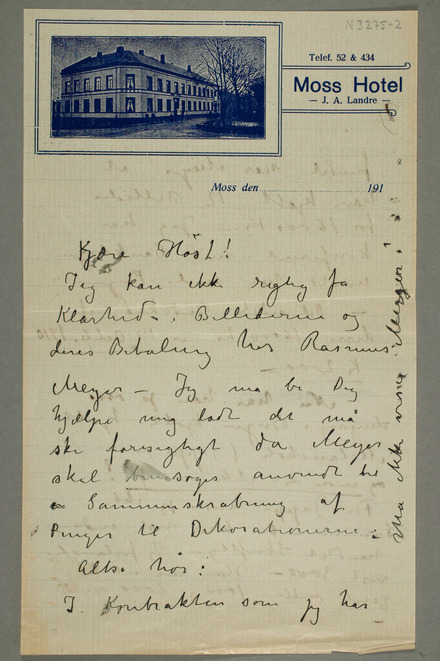 N 3275-2
Telef. 52 & 434
Moss Hotel
— J. A. Landre —
Moss den 191
Kjære Höst!
Jeg kan ikke rigtig få
Klarhed i Billederne og
deres Betaling hos Rasmus
Meyer – Jeg må be Dig
hjælpe mig ladt det må
ske forsigtigt da Meyer
skal besøges anvendt til
Sammenskrabning af
Penger til Dekorationerne –
Altså hör:
I Kontrakten som jeg har
Må ikke vises Meyer!